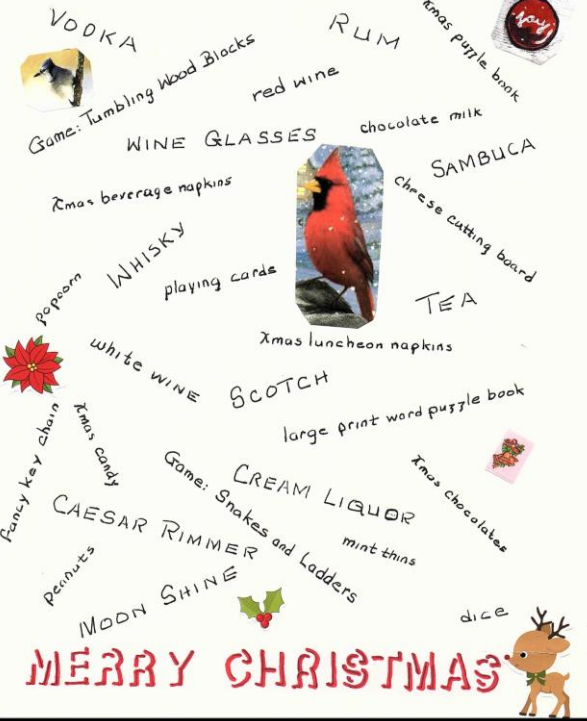 VODKA
RUM
Xmas puzzle book
joy
Game: Tumbling Wood Blocks
red wine
WINE GLASSES
chocolate milk
SAMBUCA
Xmas beverage napkins
cheese cutting board
WHISKY
playing cards
popcorn
TEA
Xmas luncheon napkins
white WINE
SCOTCH
large print word puzzle book
fancy key chain
Xmas candy
Game: Snakes and Ladders
CREAM LIQUOR
Xmas chocolates
CAESAR RIMMER
mint thins
peanuts
MOON SHINE
dice
MERRY CHRISTMAS